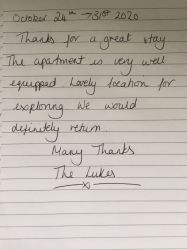 October 24th → 31st 2020
Thanks for a great stay
The apartment is very well
equipped. Lovely location for
exploring. We would
definitely return.
Many Thanks
The Lukes
x